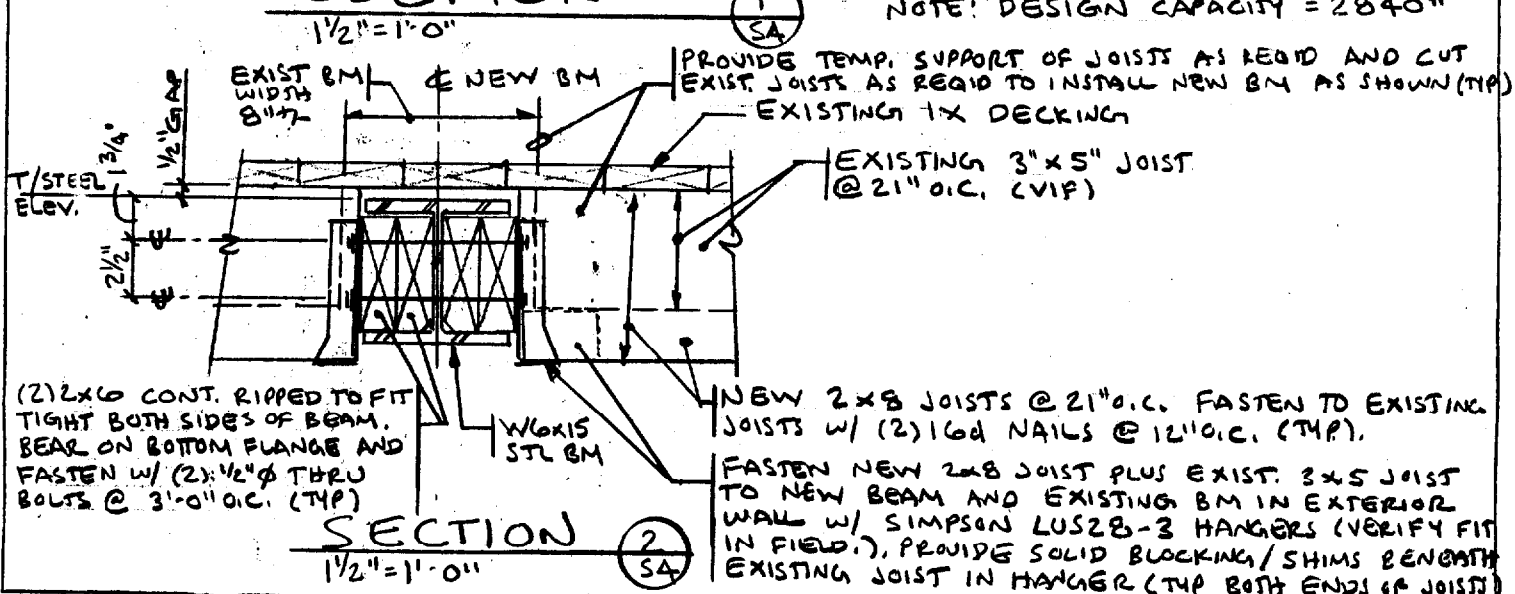 SECTION
1
S4
1½"=1'-0"
NOTE: DESIGN CAPACITY = 2840#
EXIST BM
WIDTH
8"+/-
℄ NEW BM
PROVIDE TEMP. SUPPORT OF JOISTS AS REQ'D AND CUT
EXIST. JOISTS AS REQ'D TO INSTALL NEW BM AS SHOWN (TYP)
EXISTING 1X DECKING
EXISTING 3"x5" JOIST
@ 21" O.C. (VIF)
T/STEEL
ELEV.
1¾"
½" GAP
2½"
℄
℄
(2) 2x6 CONT. RIPPED TO FIT
TIGHT BOTH SIDES OF BEAM.
BEAR ON BOTTOM FLANGE AND
FASTEN W/ (2) ½"Ø THRU
BOLTS @ 3'-0" O.C. (TYP)
W6x15
STL BM
NEW 2x8 JOISTS @ 21" O.C. FASTEN TO EXISTING
JOISTS W/ (2) 16d NAILS @ 12" O.C. (TYP).
FASTEN NEW 2x8 JOIST PLUS EXIST. 3x5 JOIST
TO NEW BEAM AND EXISTING BM IN EXTERIOR
WALL W/ SIMPSON LUS28-3 HANGERS (VERIFY FIT
IN FIELD.). PROVIDE SOLID BLOCKING/SHIMS BENEATH
EXISTING JOIST IN HANGER (TYP BOTH ENDS OF JOISTS)
SECTION
2
S4
1½"=1'-0"